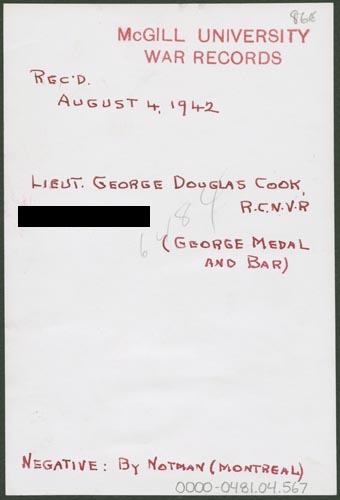 868
McGILL UNIVERSITY
WAR RECORDS
REC'D.
AUGUST 4, 1942
LIEUT. GEORGE DOUGLAS COOK,
R.C.N.V.R
(GEORGE MEDAL
AND BAR)
NEGATIVE: BY NOTMAN (MONTREAL)
0000-0481.04.567